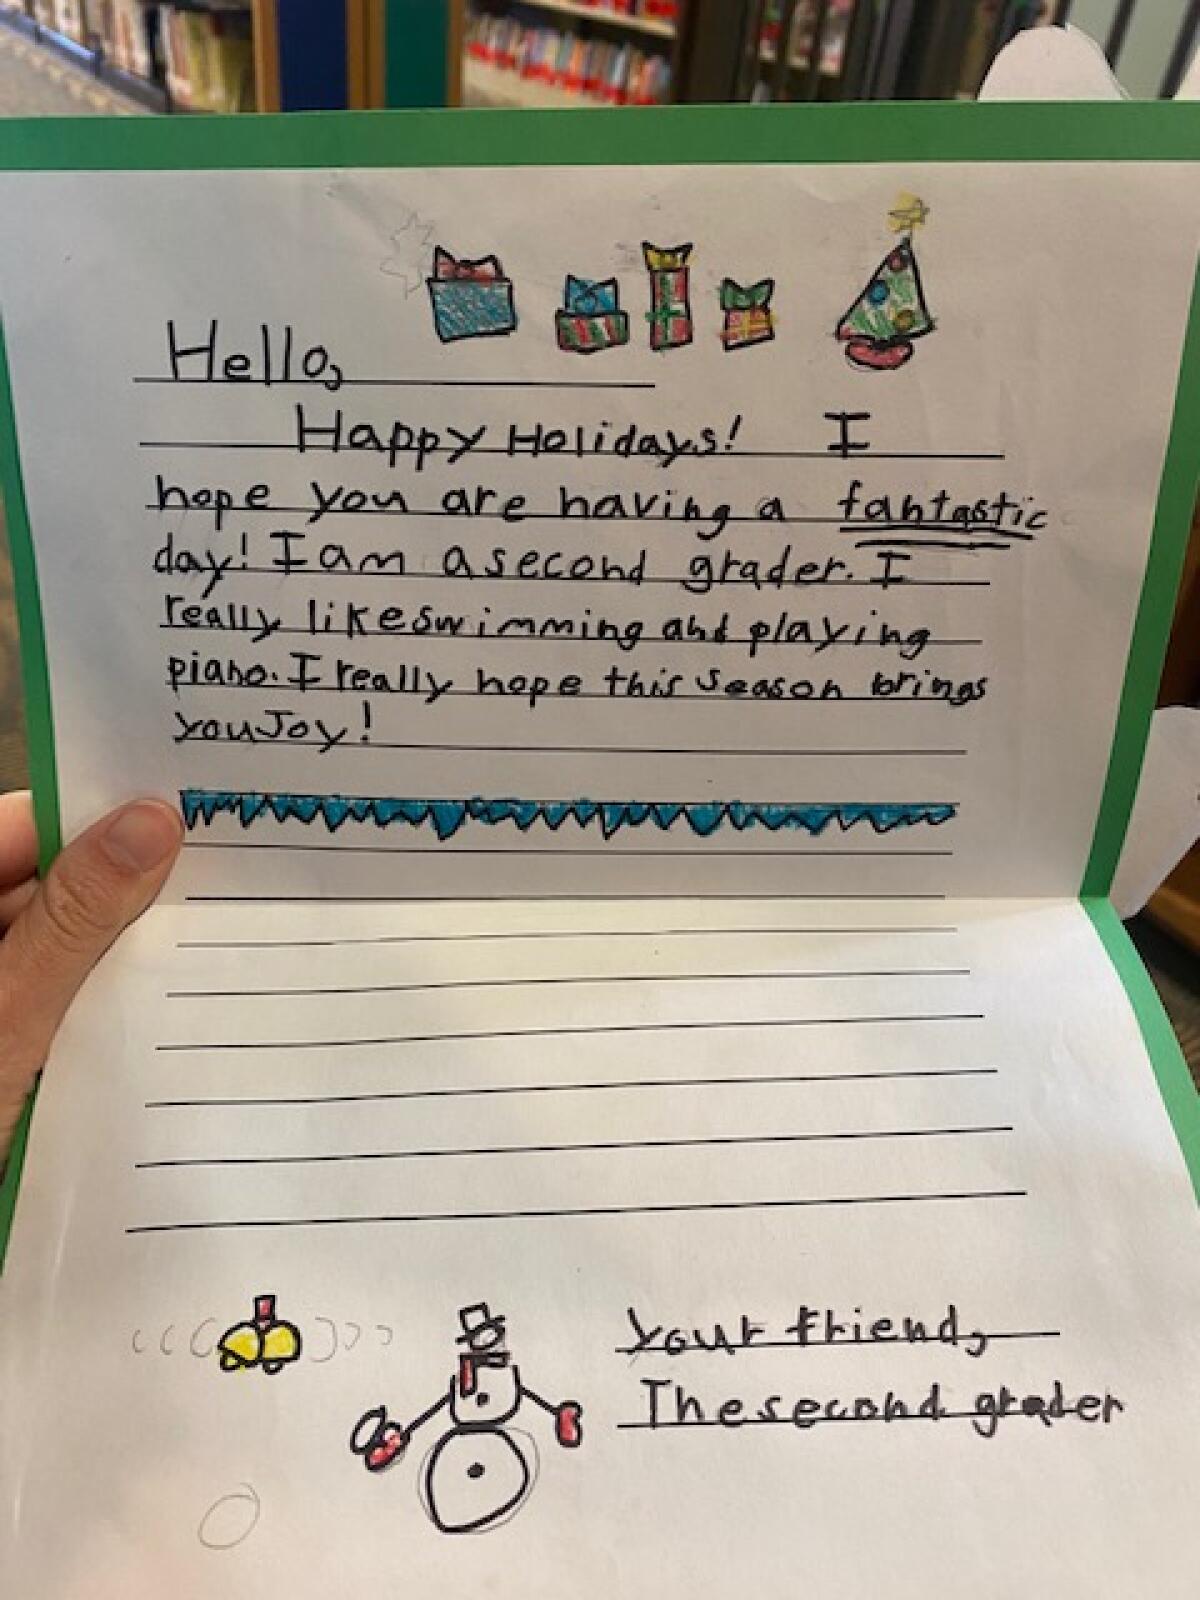 Hello,
Happy Holidays! I
hope you are having a fantastic
day! I am a second grader. I
really like swimming and playing
piano. I really hope this season brings
you Joy!
your friend,
The second grader